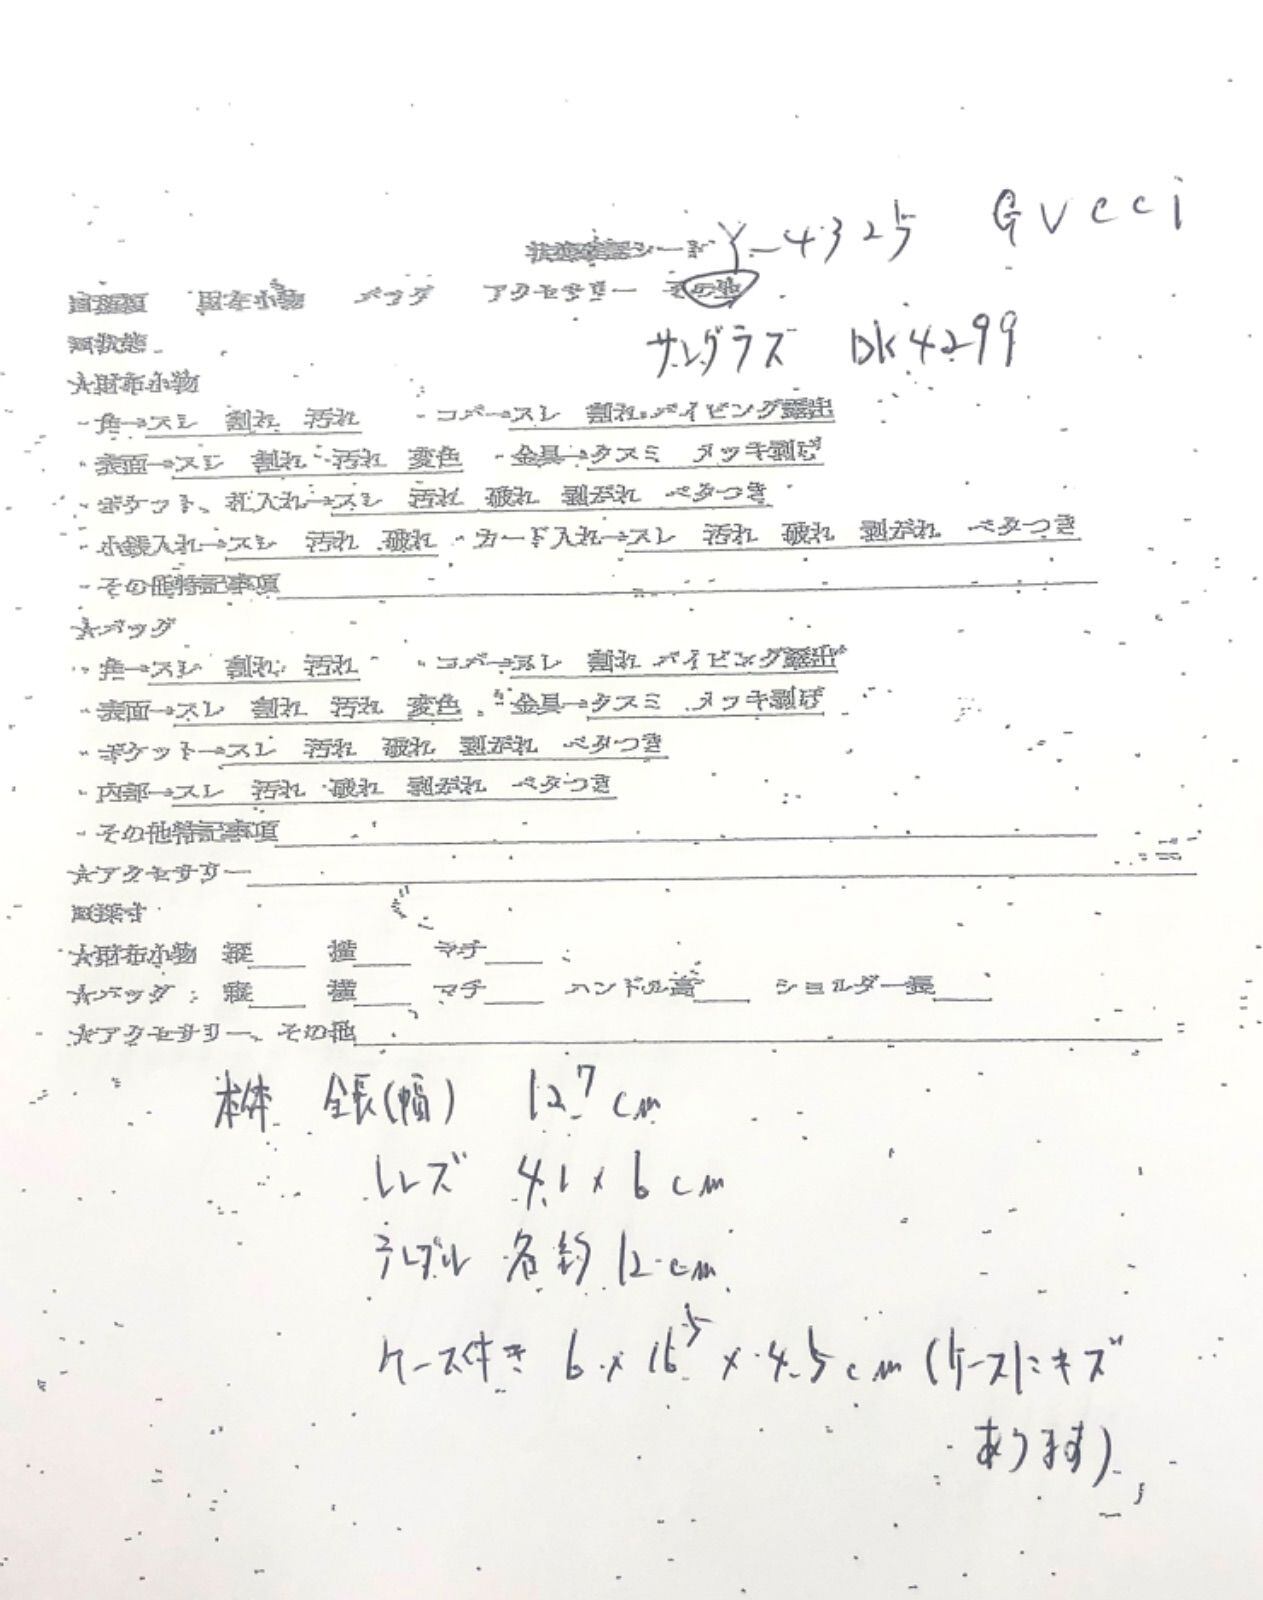 状態確認シート Y-4325 Gucci
財布小物 バッグ アクセサリー その他
状態 サングラス DK4299
★財布小物
・角→スレ 割れ 汚れ ・コバ→スレ 割れ パイピング露出
・表面→スレ 割れ 汚れ 変色 ・金具→クスミ メッキ剥げ
・ポケット、札入れ→スレ 汚れ 破れ 剥がれ ベタつき
・小銭入れ→スレ 汚れ 破れ ・カード入れ→スレ 汚れ 破れ 剥がれ ベタつき
・その他特記事項
★バッグ
・角→スレ 割れ 汚れ ・コバ→スレ 割れ パイピング露出
・表面→スレ 割れ 汚れ 変色 ・金具→クスミ メッキ剥げ
・ポケット→スレ 汚れ 破れ 剥がれ ベタつき
・内部→スレ 汚れ 破れ 剥がれ ベタつき
・その他特記事項
★アクセサリー
採寸
★財布小物 縦 横 マチ
★バッグ 縦 横 マチ ハンドル高 ショルダー長
★アクセサリー、その他
本体 全長(幅) 12.7cm
レンズ 4.1×6cm
テンプル 各約12cm
ケース付き 6×16.5×4.5cm(ケースにキズ
あります)